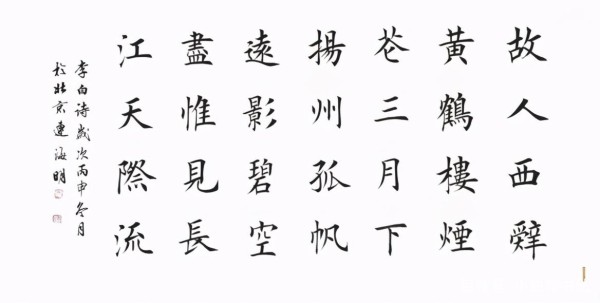 故人西辤
黄鶴樓煙
花三月下
揚州孤帆
遠影碧空
盡惟見長
江天際流
李白诗歲次丙申冬月
於北京連海明